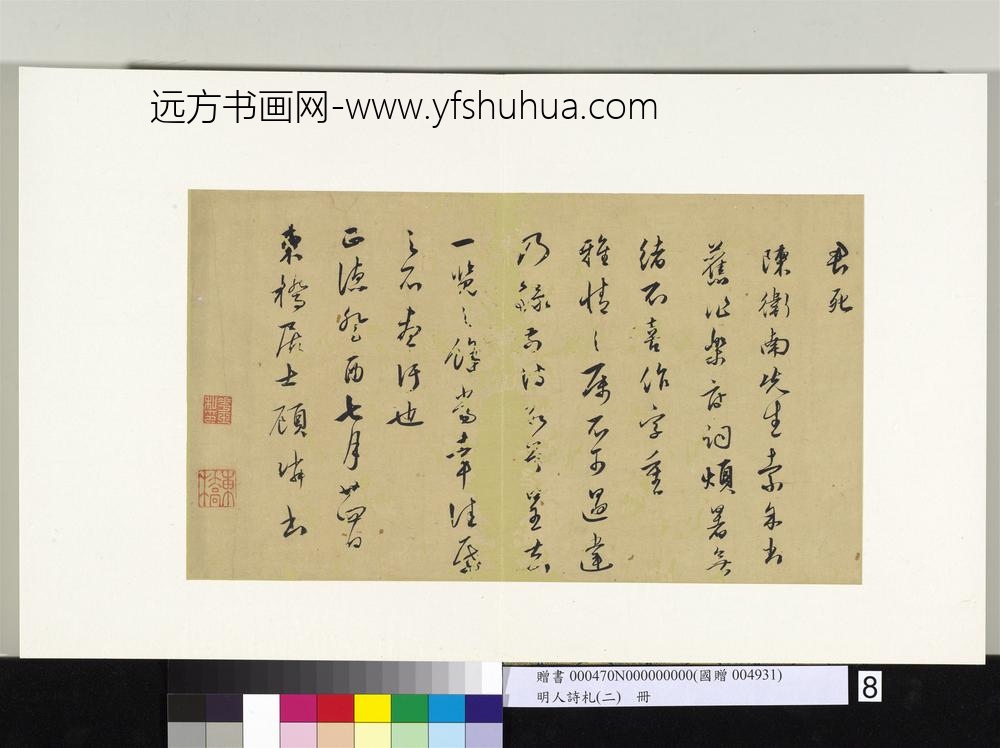 远方书画网-www.yfshuhua.com
君死
陳衛南先生索余書
舊作樂府詞煩暑無
緒不喜作字重
雅情之屬不可過違
乃錄前詩數
一覽之餘當幸
之不
正德癸酉七月廿四日
東橋居士顧璘書
東橋
贈書 000470N000000000(國贈 004931)
明人詩札(二) 冊
8